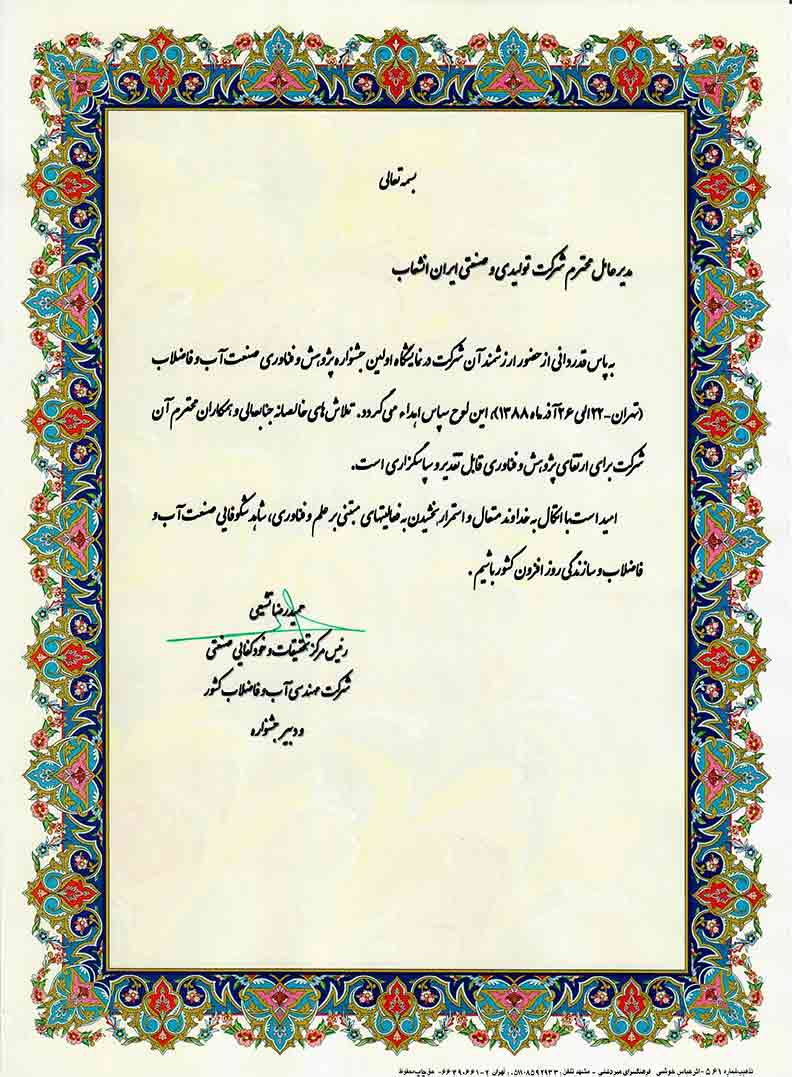 بسمه تعالی
مدیر عامل محترم شرکت تولیدی و صنعتی ایران انشعاب
به پاس قدردانی از حضور ارزشمند آن شرکت در نمایشگاه اولین جشنواره پژوهش و فناوری صنعت آب و فاضلاب
(تهران-۲۲الی۲۶آذرماه۱۳۸۸)، این لوح سپاس اهداء می گردد. تلاش های خالصانه جنابعالی و همکاران محترم آن
شرکت برای ارتقای پژوهش و فناوری قابل تقدیر و سپاسگزاری است.
امید است با اتکال به خداوند متعال و استمرار بخشیدن به فعالیتهای مبتنی بر علم و فناوری، شاهد شکوفایی صنعت آب و
فاضلاب و سازندگی روز افزون کشور باشیم.
حمیدرضا
رئیس مرکز تحقیقات و خودکفایی صنعتی
شرکت مهندسی آب و فاضلاب کشور
و دبیر جشنواره
تذهیب شماره ۵۶۱-اثر عباس خوشی فرهنگسرای میردشتی - مشهد تلفن: ۰۵۱۱۰۸۵۹۲۹۳۳ تهران ۲-۶۶۴۹۰۶۶۱- حق چاپ محفوظ